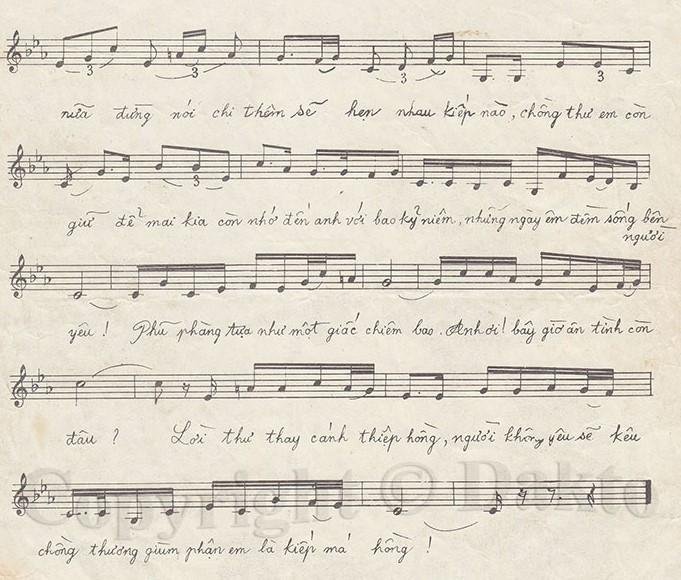 3 3 3 3
nữa đừng nói chi thêm sẽ hẹn nhau kiếp nào, chồng thư em còn
3
giữ để mai kia còn nhớ đến anh với bao kỷ niệm, những ngày êm đềm sống bên
người
yêu! Phũ phàng tựa như một giấc chiêm bao. Anh ơi! bây giờ ân tình còn
đâu? Lời thư thay cánh thiệp hồng, người không yêu sẽ kêu
Copyright © Dakto
chồng thương giùm phận em là kiếp má hồng!